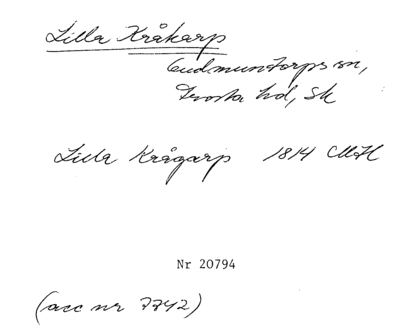 Lilla Kråkarp
Gudmuntorps sn,
Frosta hd, Sk
Lilla Krågarp 1814 CMH
Nr 20794
(acc nr 7742)